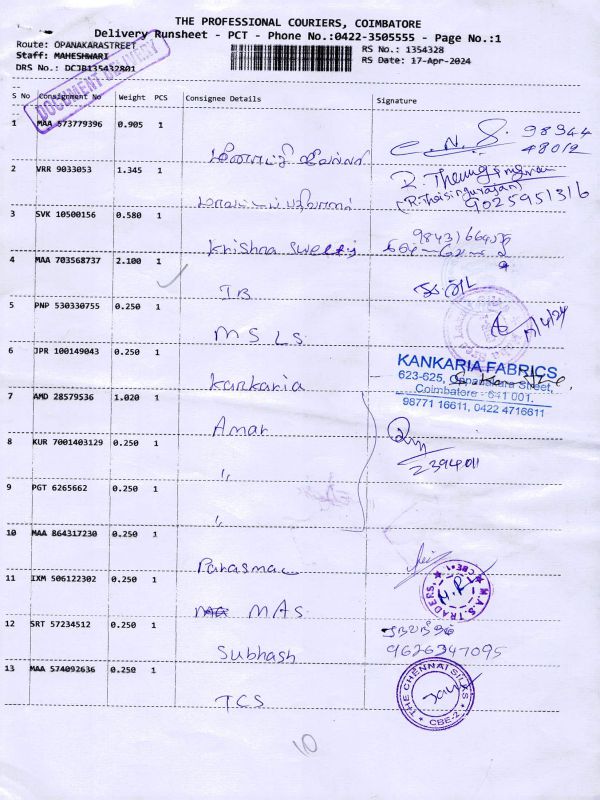 THE PROFESSIONAL COURIERS, COIMBATORE
Delivery Runsheet - PCT - Phone No.:0422-3505555 - Page No.:1
Route: OPANAKARASTREET
Staff: MAHESHWARI
DRS No.: DCJB135432801
RS No.: 1354328
RS Date: 17-Apr-2024
DOCUMENT DELIVERY
S No Consignment No Weight PCS Consignee Details Signature
1 MAA 573779396 0.905 1
98944
48012
2 VRR 9033053 1.345 1
9025951316
3 SVK 10500156 0.580 1 Krishna Sweets
4 MAA 703568737 2.100 1 IB
5 PNP 530330755 0.250 1 MSLS
17/4/24
6 JPR 100149043 0.250 1 Kankaria
KANKARIA FABRICS
623-625, Oppanakara Street,
Coimbatore - 641 001.
98771 16611, 0422 4716611
7 AMD 28579536 1.020 1 Amar
2394011
8 KUR 7001403129 0.250 1 "
9 PGT 6265662 0.250 1 "
10 MAA 864317230 0.250 1 Parasmal
11 IXM 506122302 0.250 1 MAS
M.A.S. TRADERS
CBE-1
12 SRT 57234512 0.250 1 Subhash
9626347095
13 MAA 574092636 0.250 1 TCS
THE CHENNAI SILKS
CBE-2
10